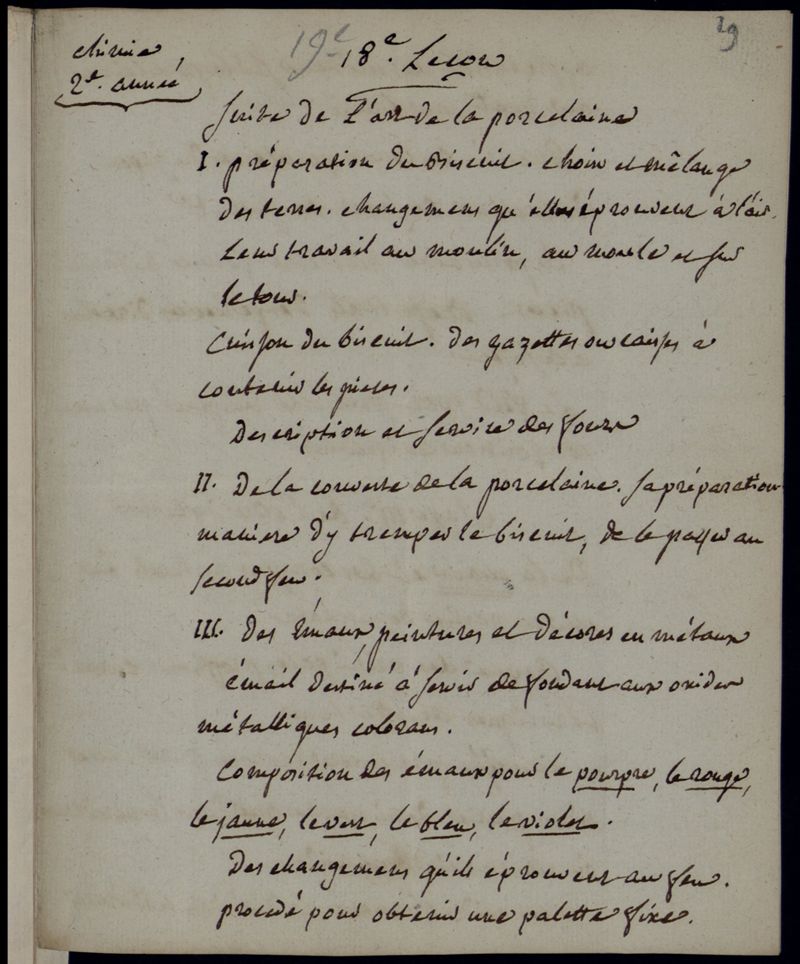 29
chimie
2e. année
19e 18e. Leçon
suite de L'art de la porcelaine
I. préparation du Biscuit. choix et mélange
des terres. changemens qu'elles éprouvent à l'air.
Leur travail au moulin, au moule et sur
le tour.
Cuisson du biscuit. des gazettes ou caisses à
contenir les pieces.
Description et service des fours
II. De la couverte de la porcelaine. sa préparation
maniere d'y tremper le biscuit, de le passer au
second feu.
III. Des Émaux, peintures et décores en métaux
émail destiné à servir de fondant aux oxides
métalliques colorans.
Composition des émaux pour le pourpre, le rouge,
le jaune, le vert, le bleu, le violet.
Des changemens qu'ils éprouvent au feu.
procédé pour obtenir une palette fixe.